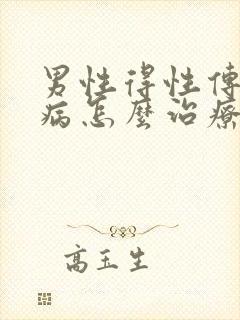 男性得性傳
病怎麼治療
高玉生